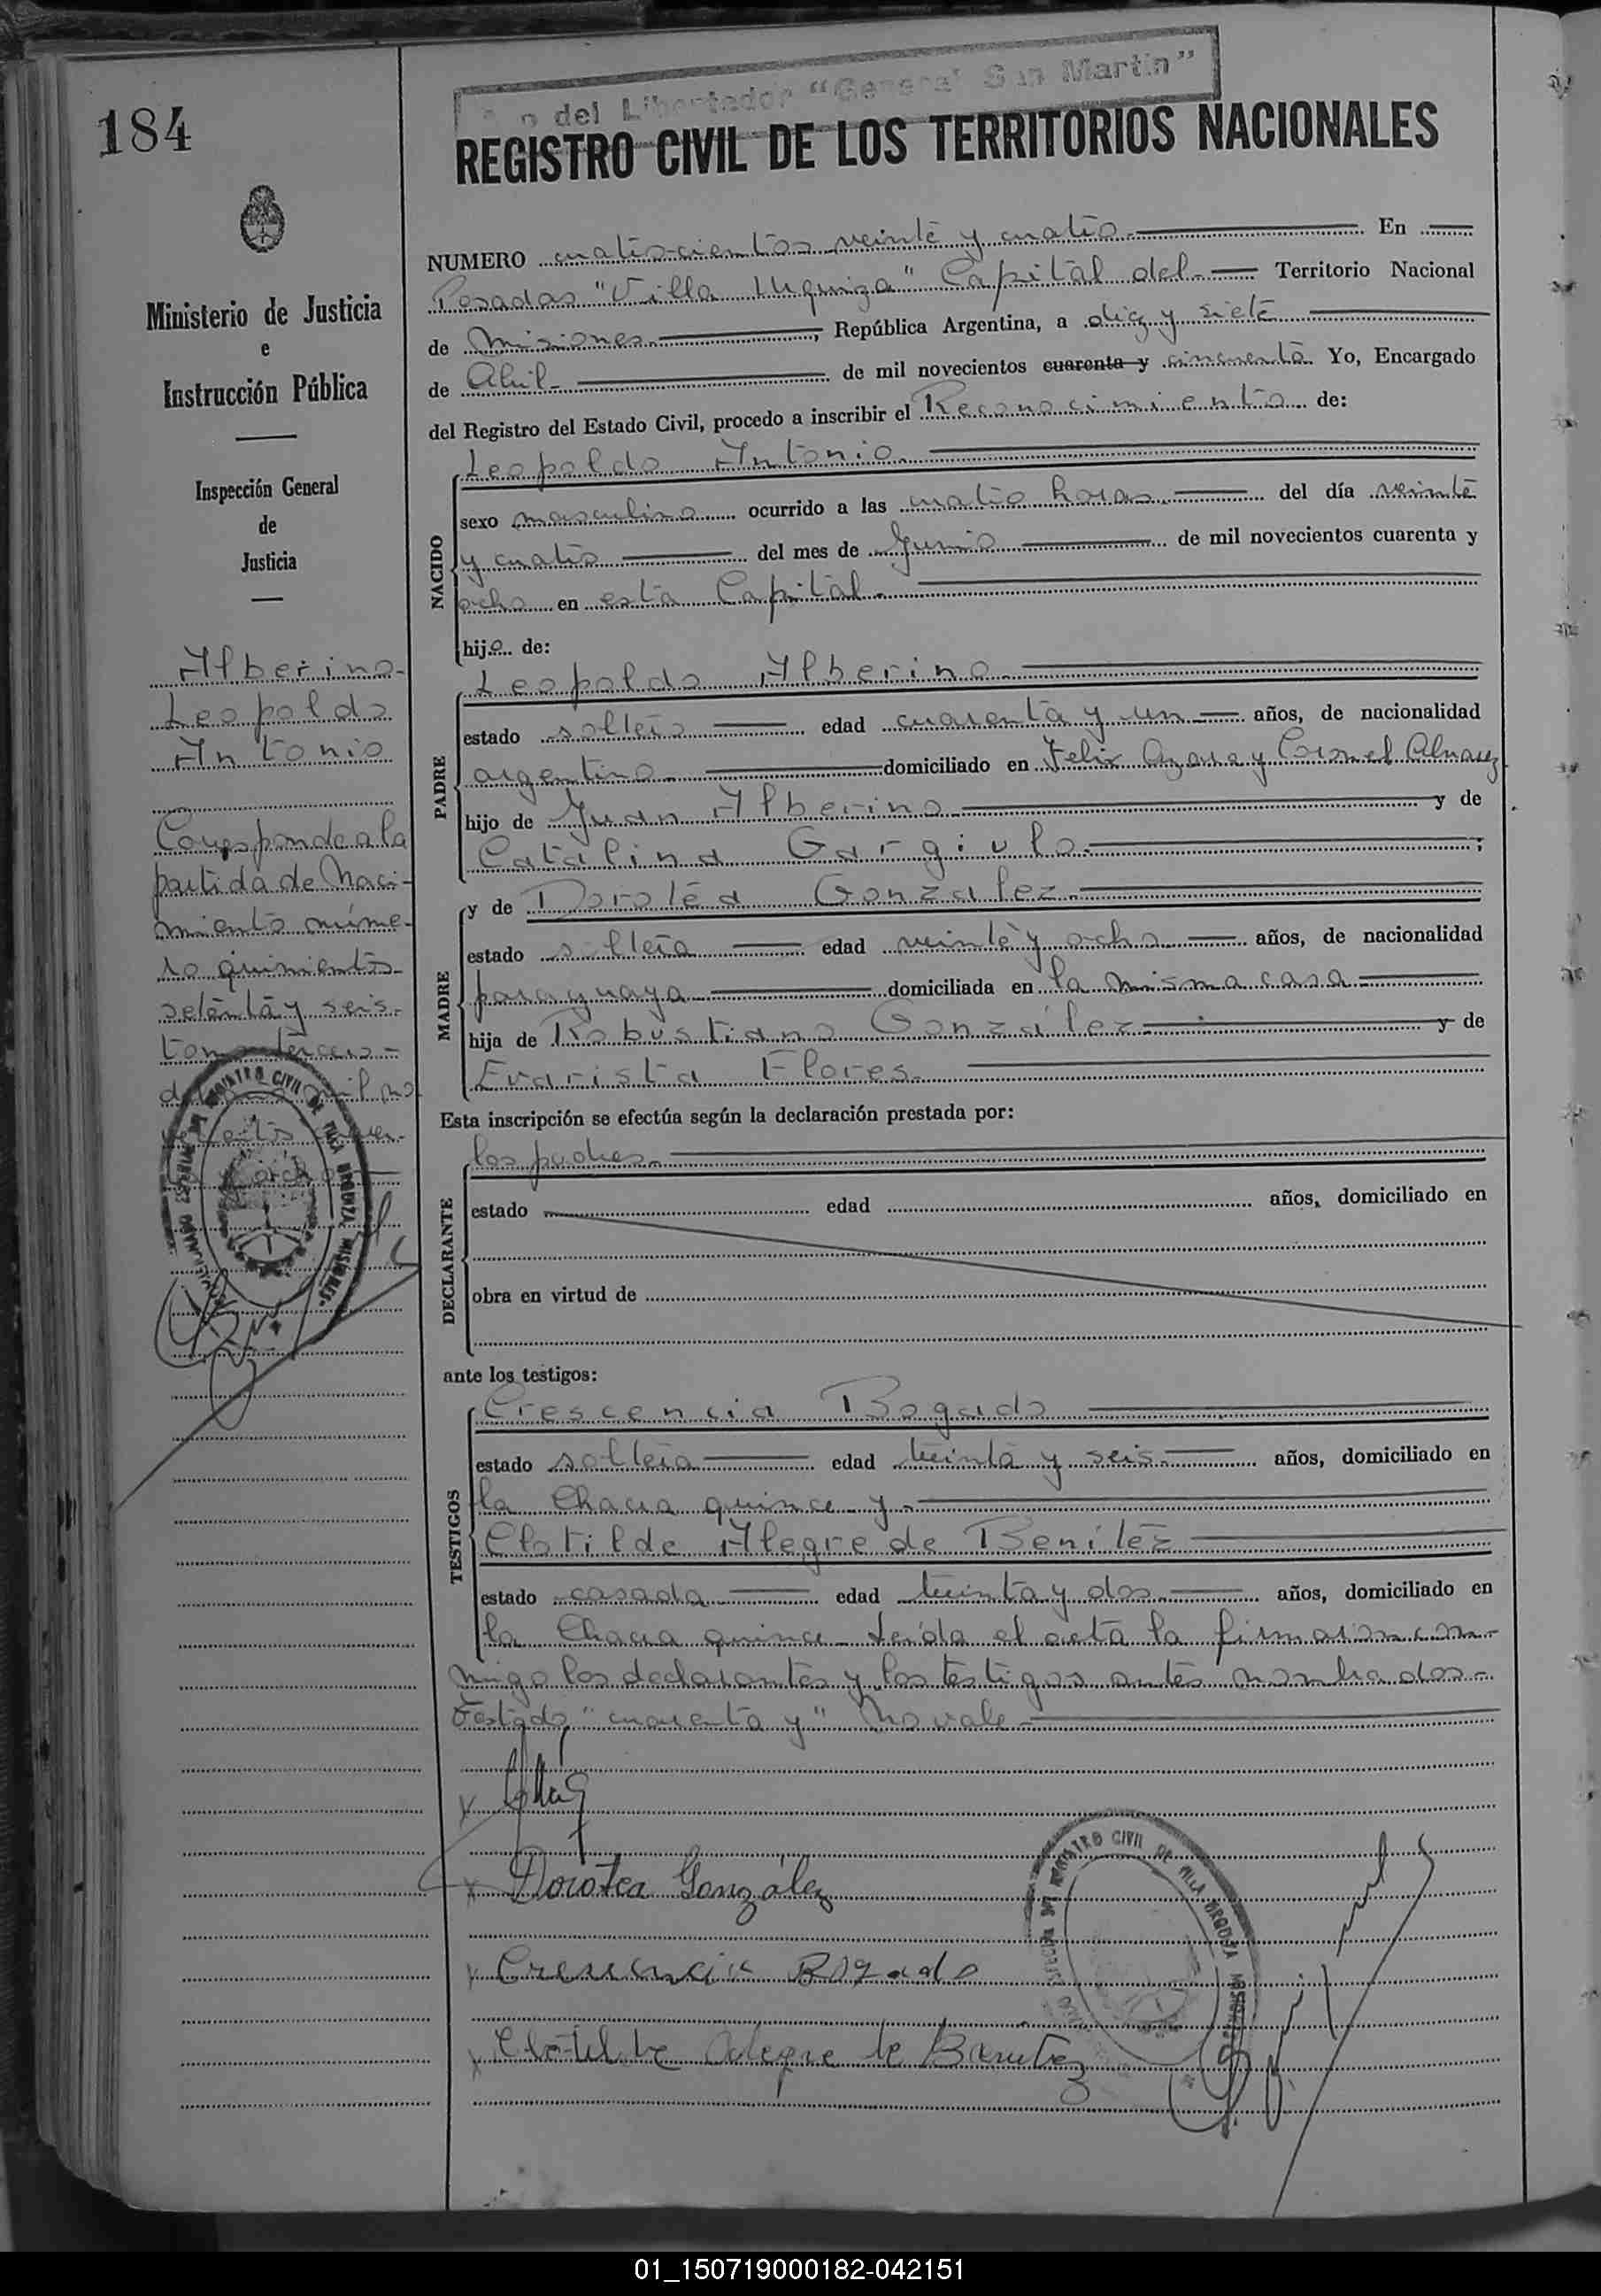 184
del Libertador "General San Martin"
REGISTRO CIVIL DE LOS TERRITORIOS NACIONALES
Ministerio de Justicia
e
Instrucción Pública
Inspección General
de
Justicia
Alberino-
Leopoldo
Antonio
Corresponde a la
partida de Naci-
miento núme-
ro quinientos
setenta y seis-
tomo tercero-
mil no
ocho
NUMERO cuatrocientos veinte y cuatro. En
Posadas "Villa Urquiza" Capital del Territorio Nacional
de Misiones, República Argentina, a diez y siete
de Abril de mil novecientos cuarenta y cincuenta Yo, Encargado
del Registro del Estado Civil, procedo a inscribir el Reconocimiento de:
NACIDO
Leopoldo Antonio.
sexo masculino ocurrido a las cuatro horas del día veinte
y cuatro del mes de Junio de mil novecientos cuarenta y
ocho en esta Capital.
hijo de:
PADRE
Leopoldo Alberino
estado soltero edad cuarenta y un años, de nacionalidad
argentino domiciliado en Felix Azara y Coronel Alvarez
hijo de Juan Alberino y de
Catalina Gargiulo.;
MADRE
y de Dorotéa Gonzalez.
estado soltera edad veinte y ocho años, de nacionalidad
paraguaya domiciliada en la misma casa
hija de Robustiano González y de
Evarista Flores.
Esta inscripción se efectúa según la declaración prestada por:
DECLARANTE
los padres.
estado edad años, domiciliado en
obra en virtud de
ante los testigos:
TESTIGOS
Crescencia Bogado
estado soltera edad treinta y seis años, domiciliado en
la Chacra quince y
Clotilde Alegre de Benítez
estado casada edad treinta y dos años, domiciliado en
la Chacra quince. Leída el acta la firmaron con-
migo los declarantes y los testigos antes nombrados-
Testado "cuarenta y" No vale
Dorotea González
Cresencia Bogado
Clotilde Alegre de Benitez
REGISTRO CIVIL DE VILLA URQUIZA MISIONES
01_150719000182-042151